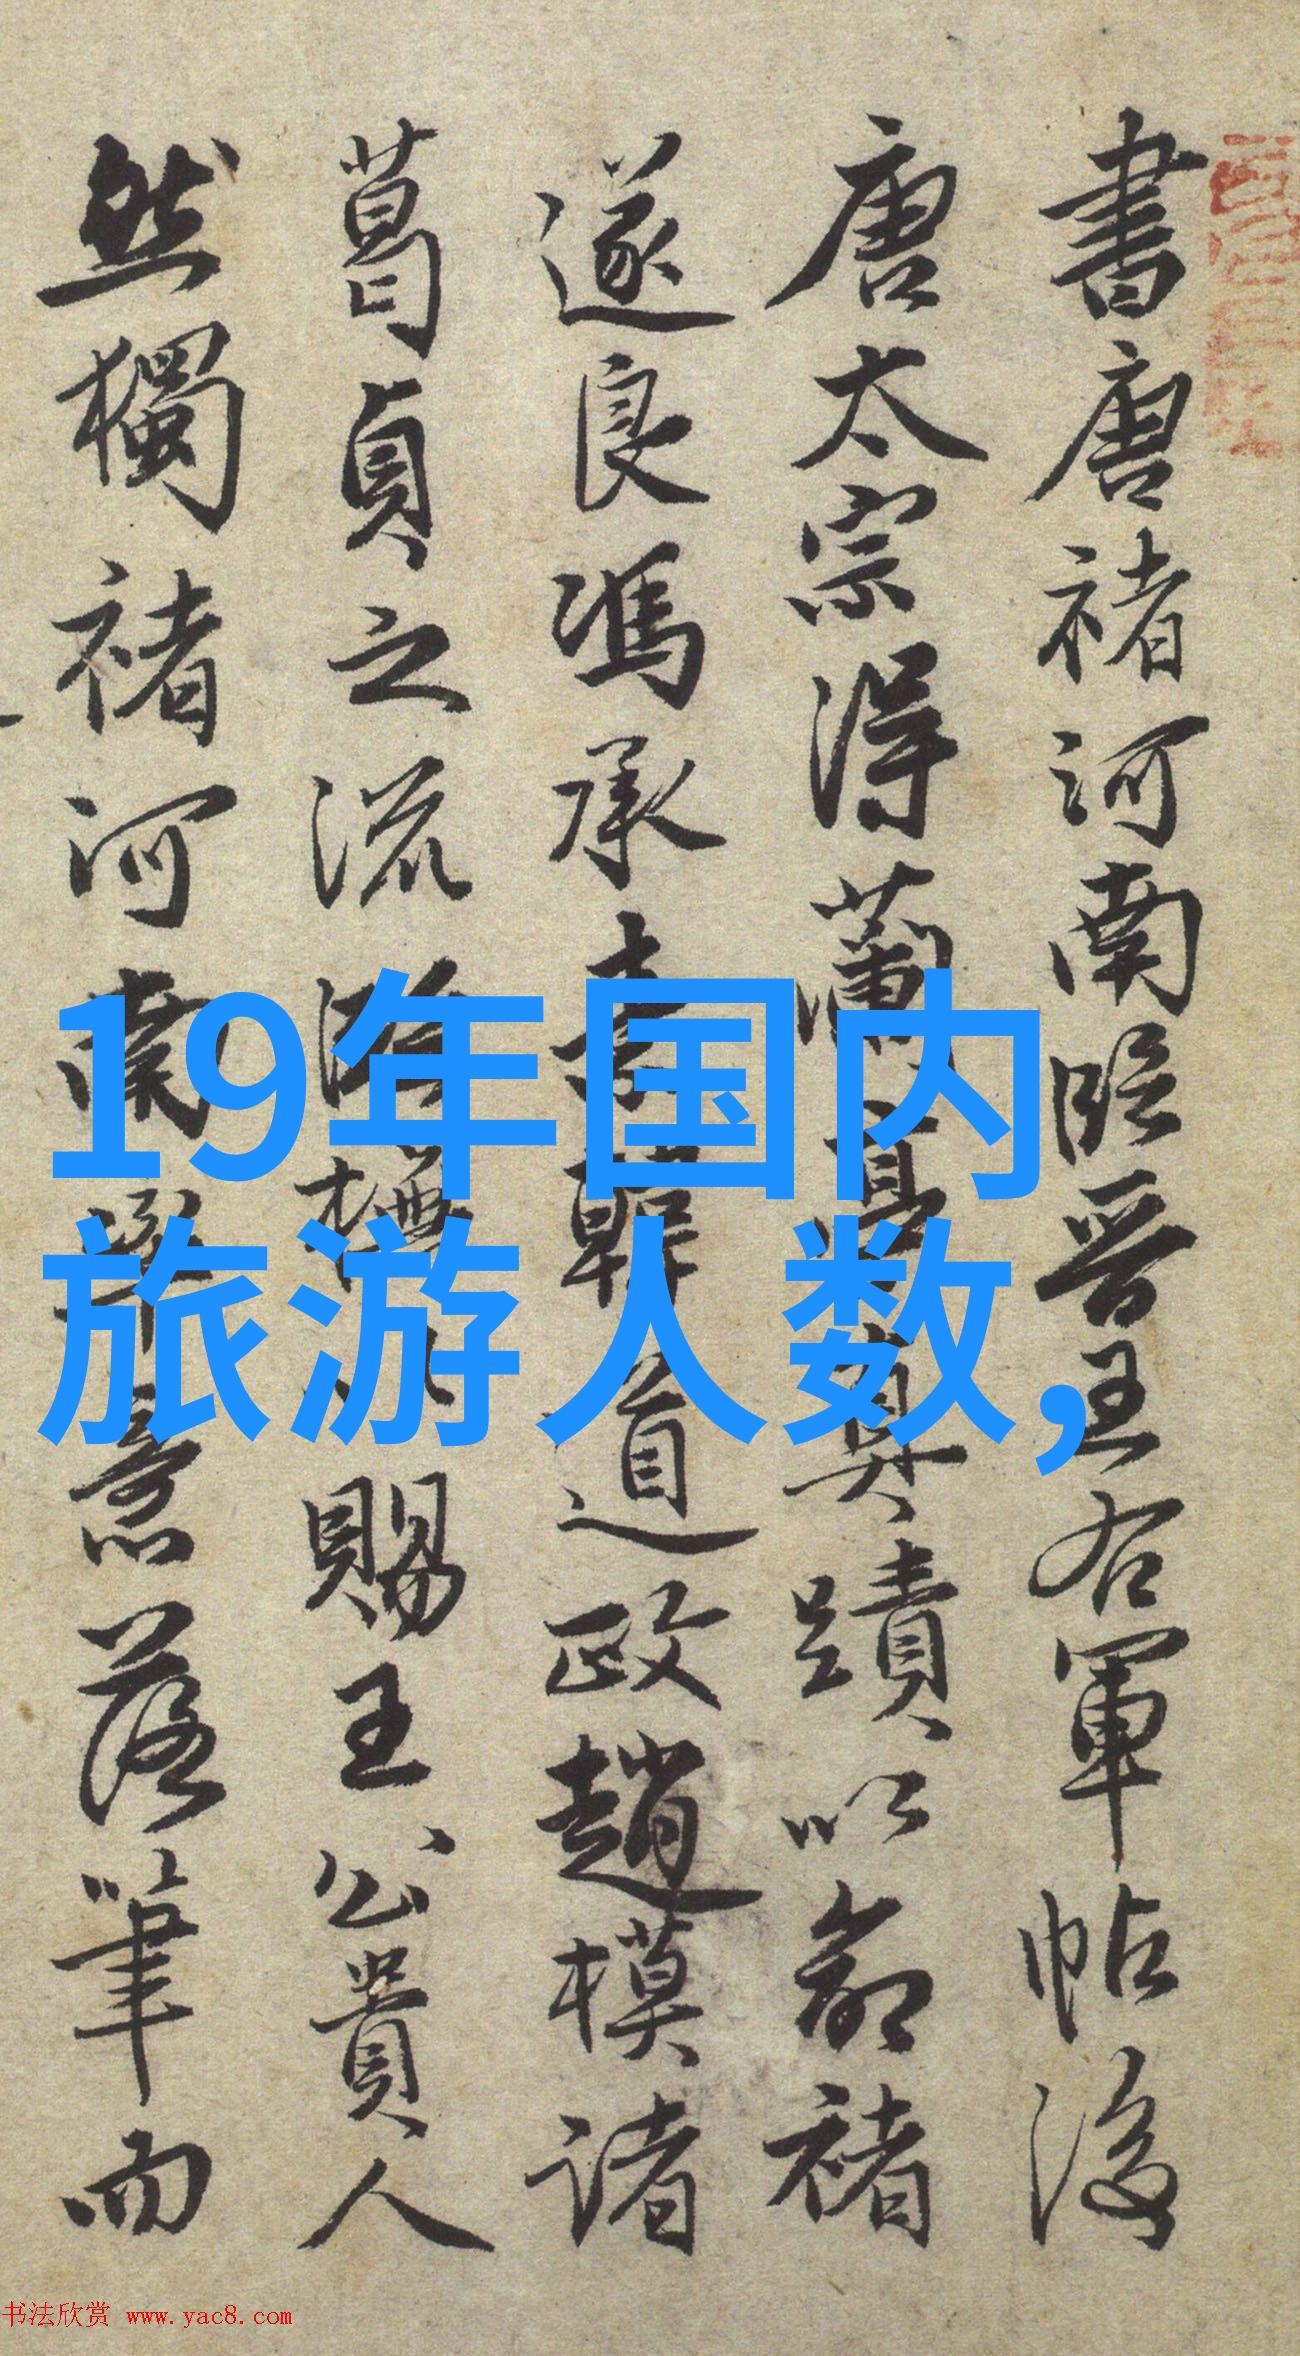 書唐褚河南臨晉王右軍帖後
唐太宗得蘭亭真蹟以命褚
遂良馮承素韓道政趙模諸
葛貞之流臨以賜王公貴人
然獨褚河南率意落筆而
19年国内
旅游人数,
书法欣赏 www.yac8.com